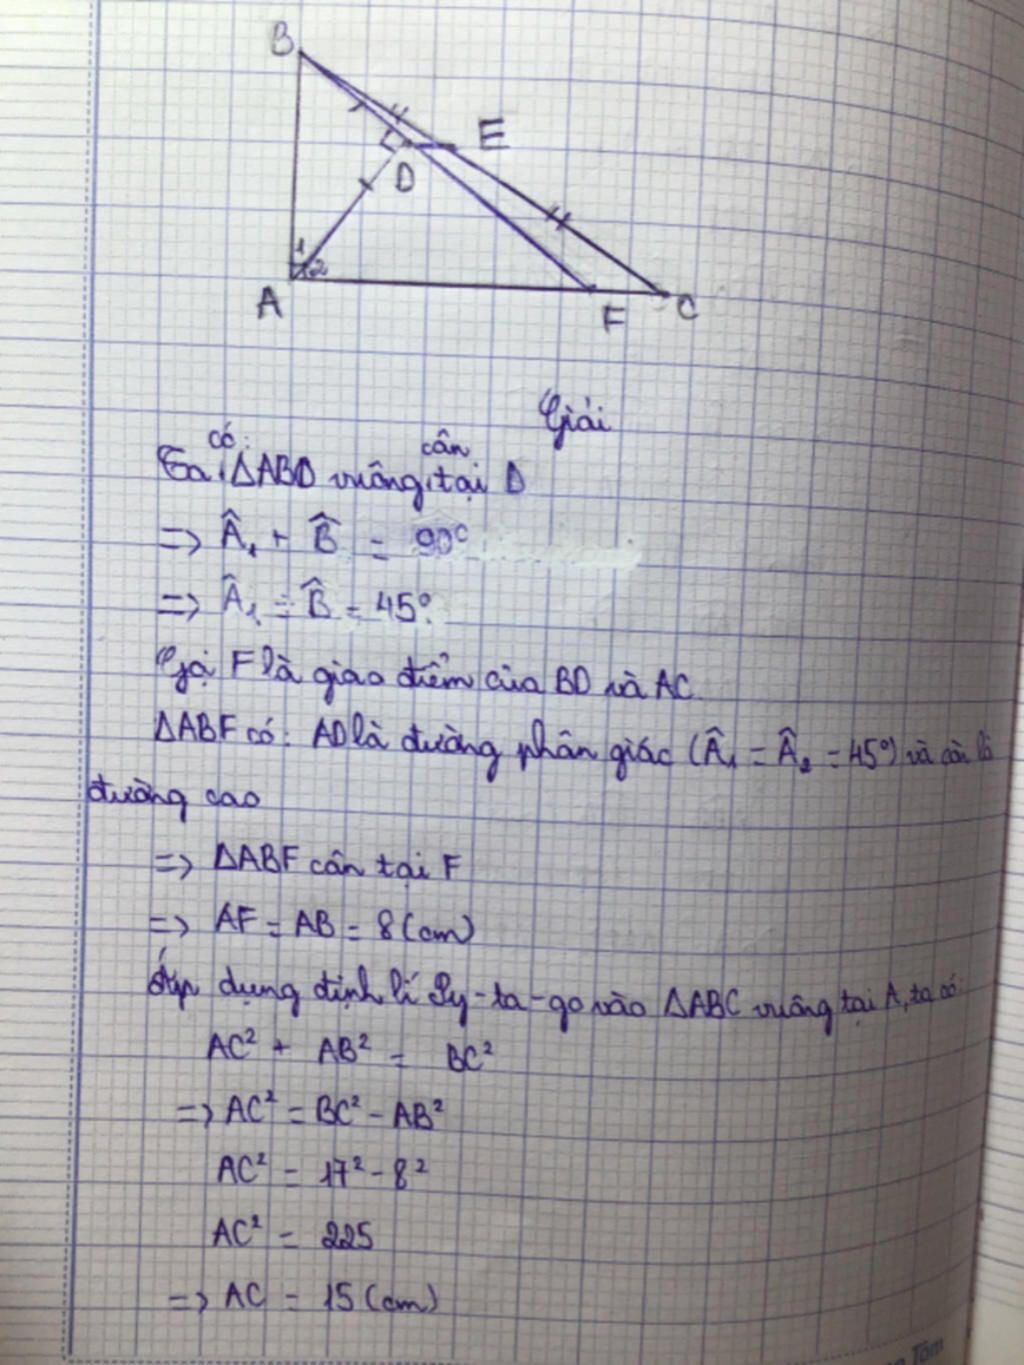 B
E
D
1
2
A
F
C
Giải
Ta có: ΔABD vuông cân tại D
=> Â₁ + B̂ = 90°
=> Â₁ = B̂ = 45°
Gọi F là giao điểm của BD và AC.
ΔABF có: AD là đường phân giác (Â₁ = Â₂ = 45°) và còn là
đường cao
=> ΔABF cân tại F
=> AF = AB = 8 (cm)
Áp dụng định lí Py-ta-go vào ΔABC vuông tại A, ta có
AC² + AB² = BC²
=> AC² = BC² - AB²
AC² = 17² - 8²
AC² = 225
=> AC = 15 (cm)